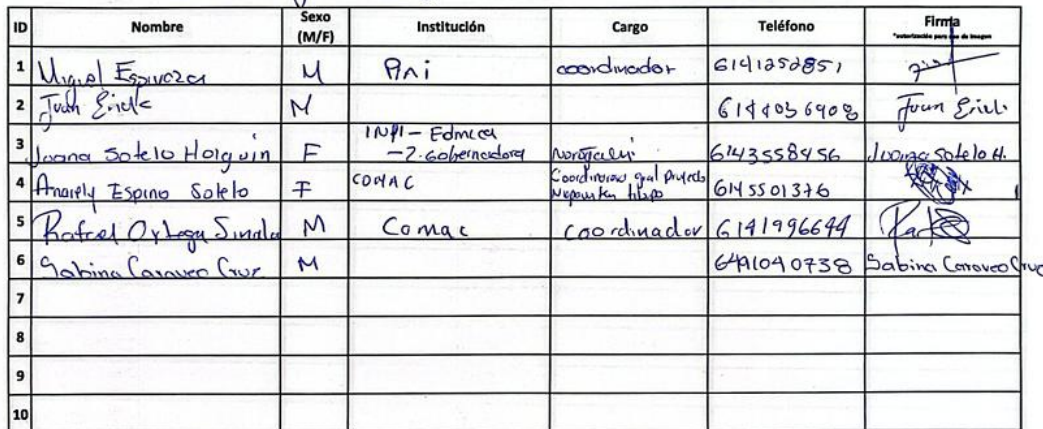 ID Nombre Sexo (M/F) Institución Cargo Teléfono Firma
*autorización para uso de imagen
1 Miguel Espinoza M Ani coordinador 6141252851
2 Juan Erick M 6144036908 Juan Erick
3 Juana Sotelo Holguin F INPI - Edmica - 2. Gobernadora 6143558456 Juana Sotelo H.
4 Anarely Espino Sotelo F COMAC Coordinadora gral Proyecto 6145501376
5 Rafael Ortega M Comac coordinador 6141996644
6 Sabina Caraveo Cruz M 6491040738 Sabina Caraveo Cruz
7
8
9
10